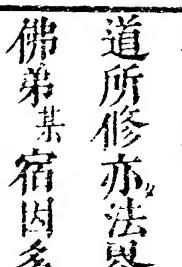 道所修亦法界
佛弟某宿因多